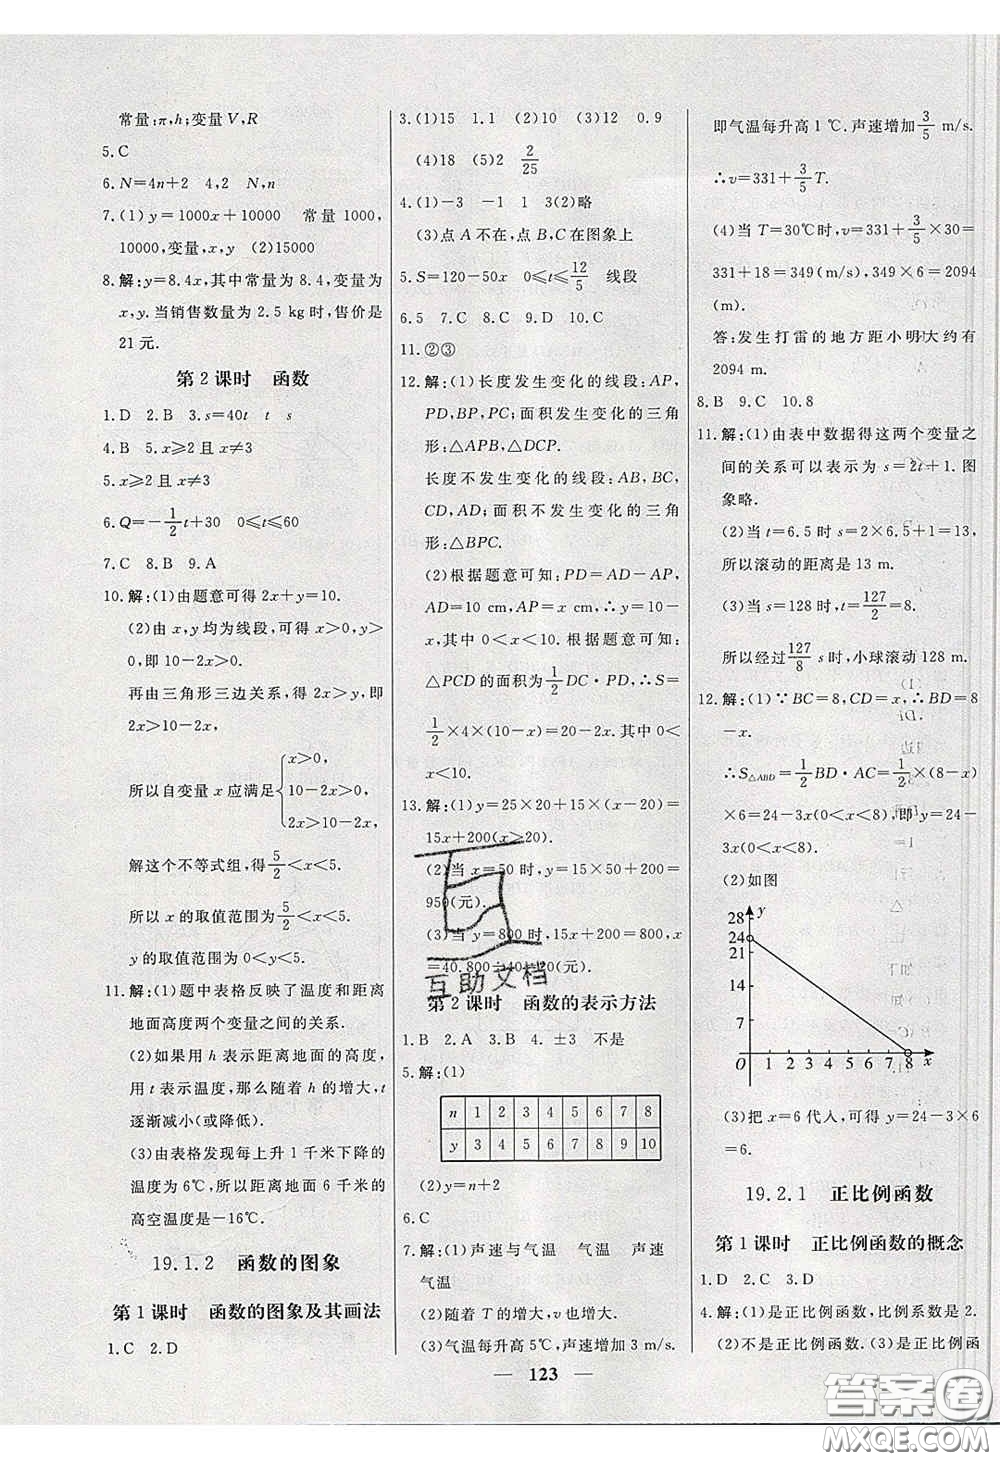 常量:π,h;变量V,R
5.C
6.N=4n+2 4,2 N,n
7.(1)y=1000x+10000 常量1000,
10000,变量,x,y (2)15000
8.解:y=8.4x,其中常量为8.4,变量为
x,y.当销售数量为2.5 kg时,售价是
21元.
第2课时 函数
1.D 2.B 3.s=40t t s
4.B 5.x≥2且x≠3
5.x≥2且x≠3
6.Q=-1/2t+30 0≤t≤60
7.C 8.B 9.A
10.解:(1)由题意可得2x+y=10.
(2)由x,y均为线段,可得x>0,y>
0,即10-2x>0.
再由三角形三边关系,得2x>y,即
2x>10-2x,
所以自变量x应满足{x>0,
10-2x>0
2x>10-2x,
解这个不等式组,得5/2<x<5.
所以x的取值范围为5/2<x<5.
y的取值范围为0<y<5.
11.解:(1)题中表格反映了温度和距离
地面高度两个变量之间的关系.
(2)如果用h表示距离地面的高度,
用t表示温度,那么随着h的增大,t
逐渐减小(或降低).
(3)由表格发现每上升1千米下降的
温度为6℃,所以距离地面6千米的
高空温度是-16℃.
19.1.2 函数的图象
第1课时 函数的图象及其画法
1.C 2.D
3.(1)15 1.1 (2)10 (3)12 0.9
(4)18 (5)2 2/25
4.(1)-3 -1 1 3(2)略
(3)点A不在,点B,C在图象上
5.S=120-50x 0≤t≤12/5 线段
6.5 7.C 8.C 9.D 10.C
11.②③
12.解:(1)长度发生变化的线段:AP,
PD,BP,PC;面积发生变化的三角
形:△APB,△DCP.
长度不发生变化的线段:AB,BC,
CD,AD;面积不发生变化的三角
形:△BPC.
(2)根据题意可知:PD=AD-AP,
AD=10 cm,AP=x cm,∴y=10-
x,其中0<x<10.根据题意可知:
△PCD的面积为1/2DC·PD,∴S=
1/2×4×(10-x)=20-2x.其中0<
x<10.
13.解:(1)y=25×20+15×(x-20)=
15x+200(x≥20).
(2)当x=50时,y=15×50+200=
950(元).
(3)当y=800时,15x+200=800,x
=40.800÷40=20(元).
互助文档
第2课时 函数的表示方法
1.B 2.A 3.B 4.±3 不是
5.解:(1)
n 1 2 3 4 5 6 7 8
y 3 4 5 6 7 8 9 10
(2)y=n+2
6.C
7.解:(1)声速与气温 气温 声速
气温
(2)随着T的增大,v也增大.
(3)气温每升高5℃,声速增加3 m/s.
即气温每升高1℃.声速增加3/5 m/s.
∴v=331+3/5T.
(4)当T=30℃时,v=331+3/5×30=
331+18=349(m/s),349×6=2094
(m).
答:发生打雷的地方距小明大约有
2094 m.
8.B 9.C 10.8
11.解:(1)由表中数据得这两个变量之
间的关系可以表示为s=2t+1.图
象略.
(2)当t=6.5时s=2×6.5+1=13,
所以滚动的距离是13 m.
(3)当s=128时,t=127/2=8.
所以经过127/8 s时,小球滚动128 m.
12.解:(1)∵BC=8,CD=x,∴BD=8
-x.
∴S△ABD=1/2BD·AC=1/2×(8-x)
×6=24-3x(0<x<8),即y=24-
3x(0<x<8).
(2)如图
28 y
24
21
14
7
O 1 2 3 4 5 6 7 8 x
(3)把x=6代入,可得y=24-3×6
=6.
19.2.1 正比例函数
第1课时 正比例函数的概念
1.D 2.C 3.D
4.解:(1)是正比例函数,比例系数是2.
(2)不是正比例函数.(3)是正比例函
— 123 —
答案圈
MXQE.COM